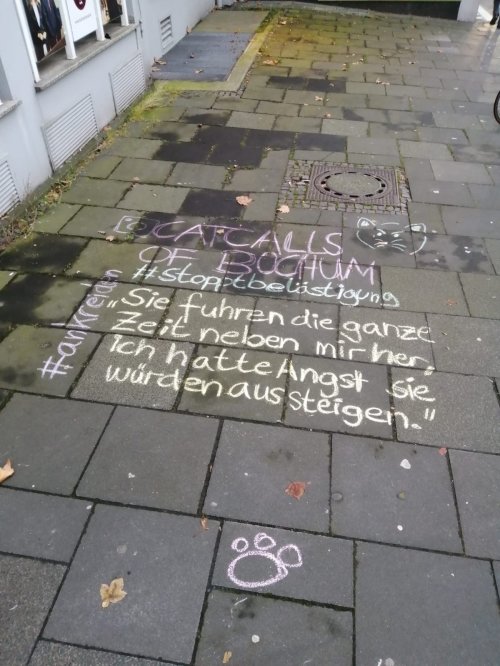 CATCALLS
OF BOCHUM
#stopptbelästigung
#ankreiden
„Sie fuhren die ganze
Zeit neben mir her.
Ich hatte Angst sie
würden aussteigen."